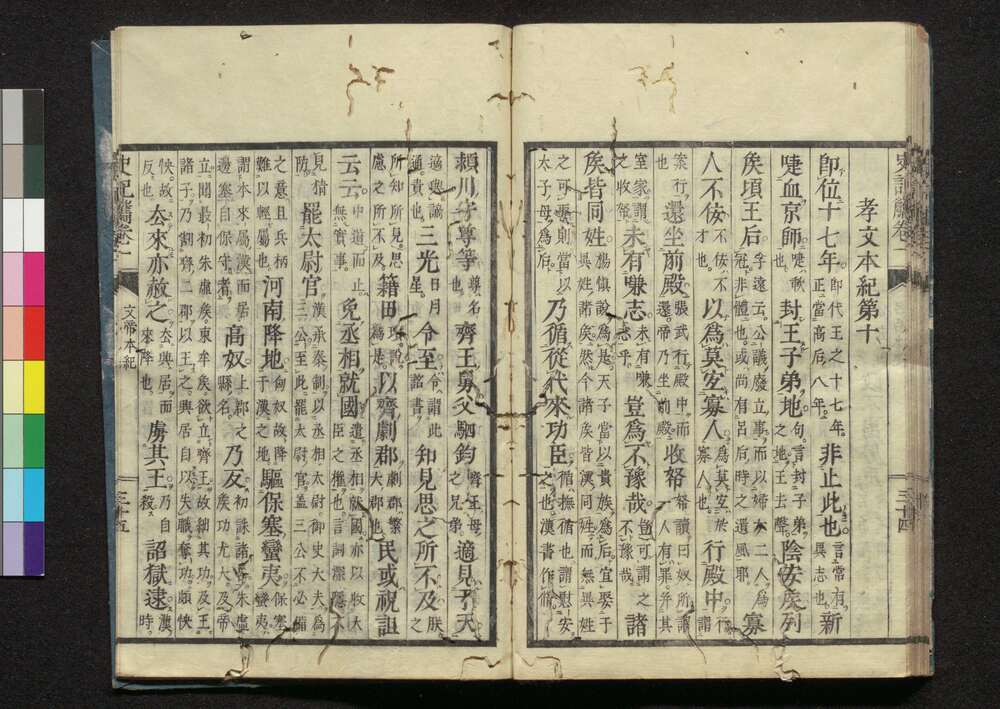 孝文本紀第十
即位十七年正當高后八年即代王之十七年非止此也言常有異志也新
喋血京師喋歃封王子弟地句言封子弟之地王去聲陰安矦列
矦頃王后孚遠云公議廢立事而以婦女二人為冠非體也或尚有呂后時之遺風耶寡
人不佞不佞不才也以為莫宜寡人為莫宜於寡人也行殿中行謂
案行也還坐前殿張武行殿中而還帝乃坐前殿收帑帑讀曰奴所謂一人有罪并其
室家謂之收帑未有嗛志未有嗛志乎豈為不豫哉豈可謂之不豫哉諸
矦皆同姓楊慎說為是天子當以貴族為后宜娶于異姓諸矦然今諸矦皆漢同姓而無異姓
之可娶則當以太子母為后乃循從代來功臣循撫循也謂慰安之也漢書作脩
潁川守尊等尊名也齊王舅父駟鈞齊王母之兄弟適見于天
適與謫通責也三光日月星令至令謂此詔書知見思之所不及朕之
所知所見思慮之所不及籍田巧說為是以齊劇郡劇郡繁大郡也民或祝詛
云云中道而止無實事免丞相就國遣丞相就國亦以收大臣之權也言詞深隱不
見情防罷太尉官漢承秦制以丞相太尉御史大夫為三公至此罷太尉官蓋三公不必備
之意且兵柄難以輕屬也河南降地匈奴故降于漢之地驅保塞蠻夷保塞蠻夷
謂本來屬漢而居邊塞自保守者高奴上郡之縣名乃反初誅諸呂朱虛矦功尤大及帝
立聞最初朱虛矦東牟矦欲立齊王故絀其功及王諸子乃割齊二郡以王之興居自以失職奪功頗怏
怏故反也厺來亦赦之厺與居而來降也虜其王乃自殺詔獄逮漢時
史記觽卷一
三十四
史記觽卷一
文帝本紀
三十五